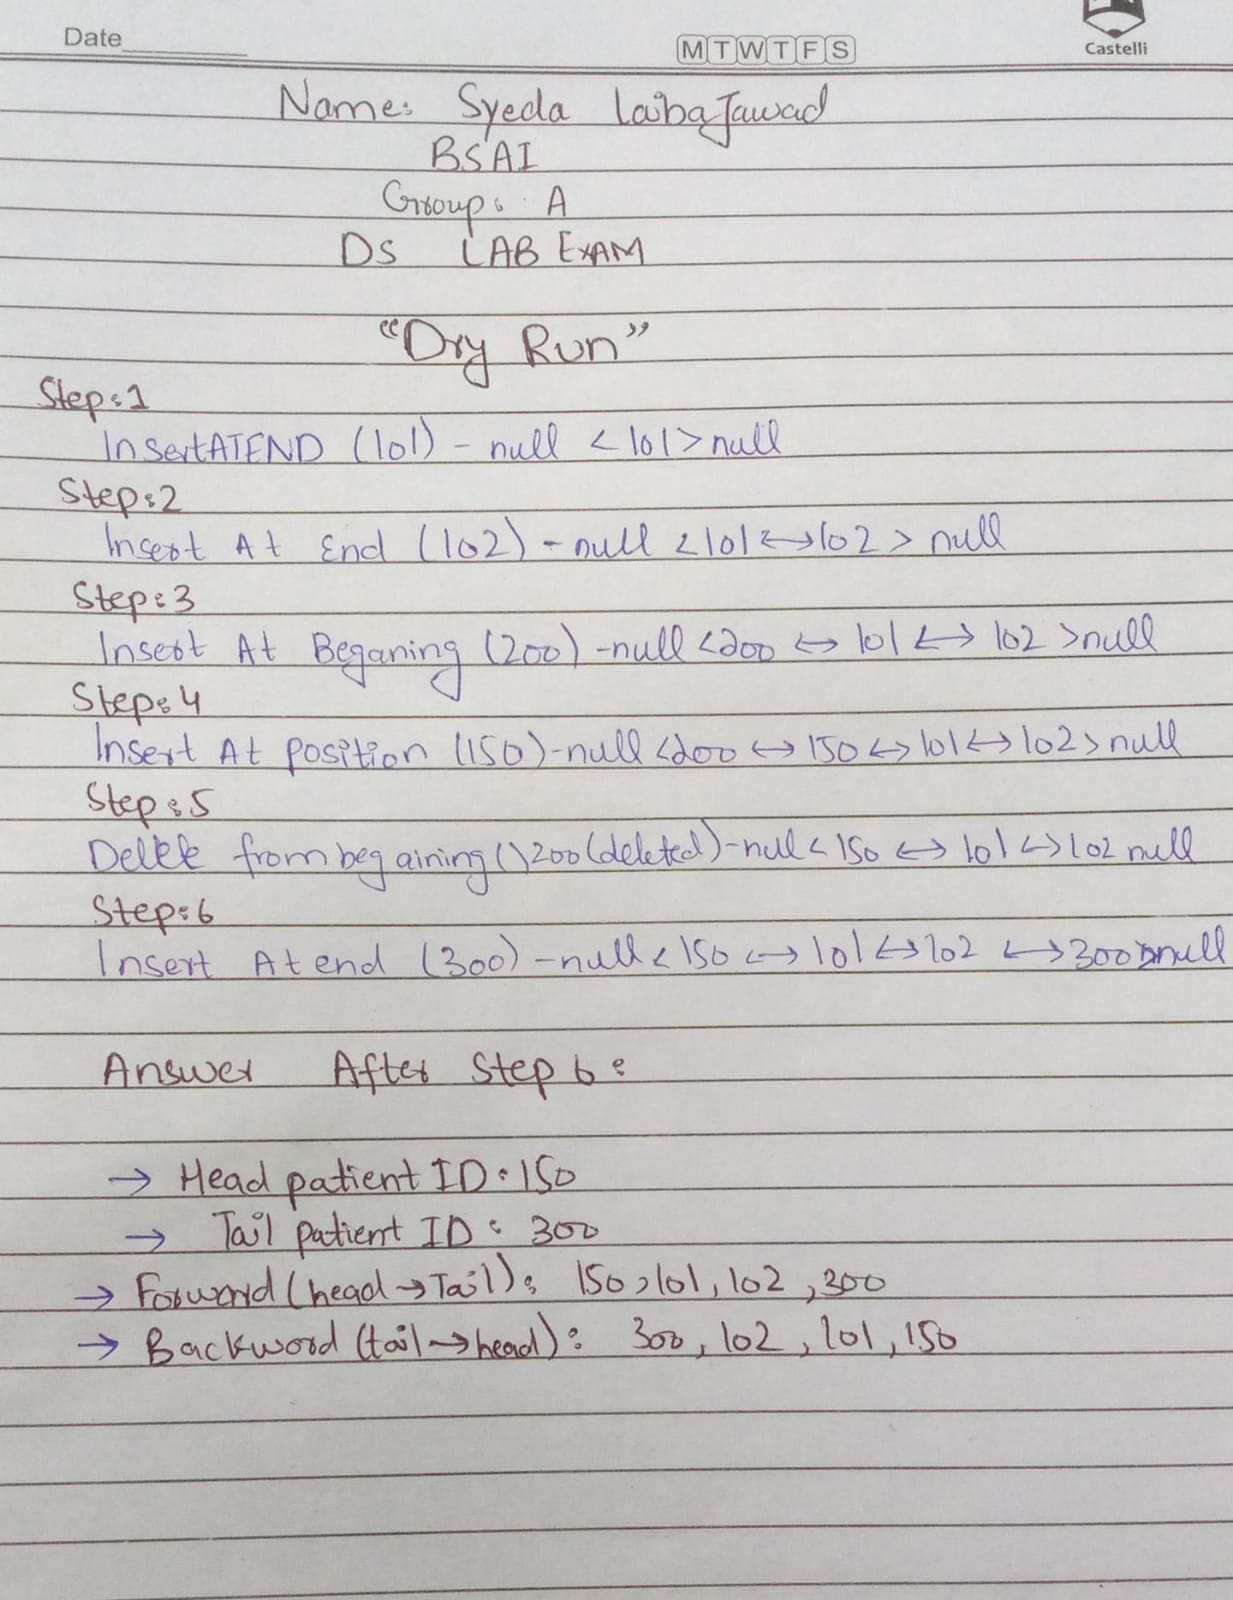 Date
M T W T F S
Castelli
Name: Syeda Laiba Jawad
BSAI
Group: A
DS LAB EXAM
"Dry Run"
Step:1
InsertATEND (101) - null < 101 > null
Step:2
Insert At End (102) - null < 101 <-> 102 > null
Step:3
Insert At Beganing (200) - null < 200 <-> 101 <-> 102 > null
Step:4
Insert At position (150) - null < 200 <-> 150 <-> 101 <-> 102 > null
Step:5
Delete from begaining () 200 (deleted) - null < 150 <-> 101 <-> 102 null
Step:6
Insert At end (300) - null < 150 <-> 101 <-> 102 <-> 300 > null
Answer After Step 6:
→ Head patient ID: 150
→ Tail patient ID: 300
→ Forword (head → Tail): 150, 101, 102, 300
→ Backword (tail → head): 300, 102, 101, 150